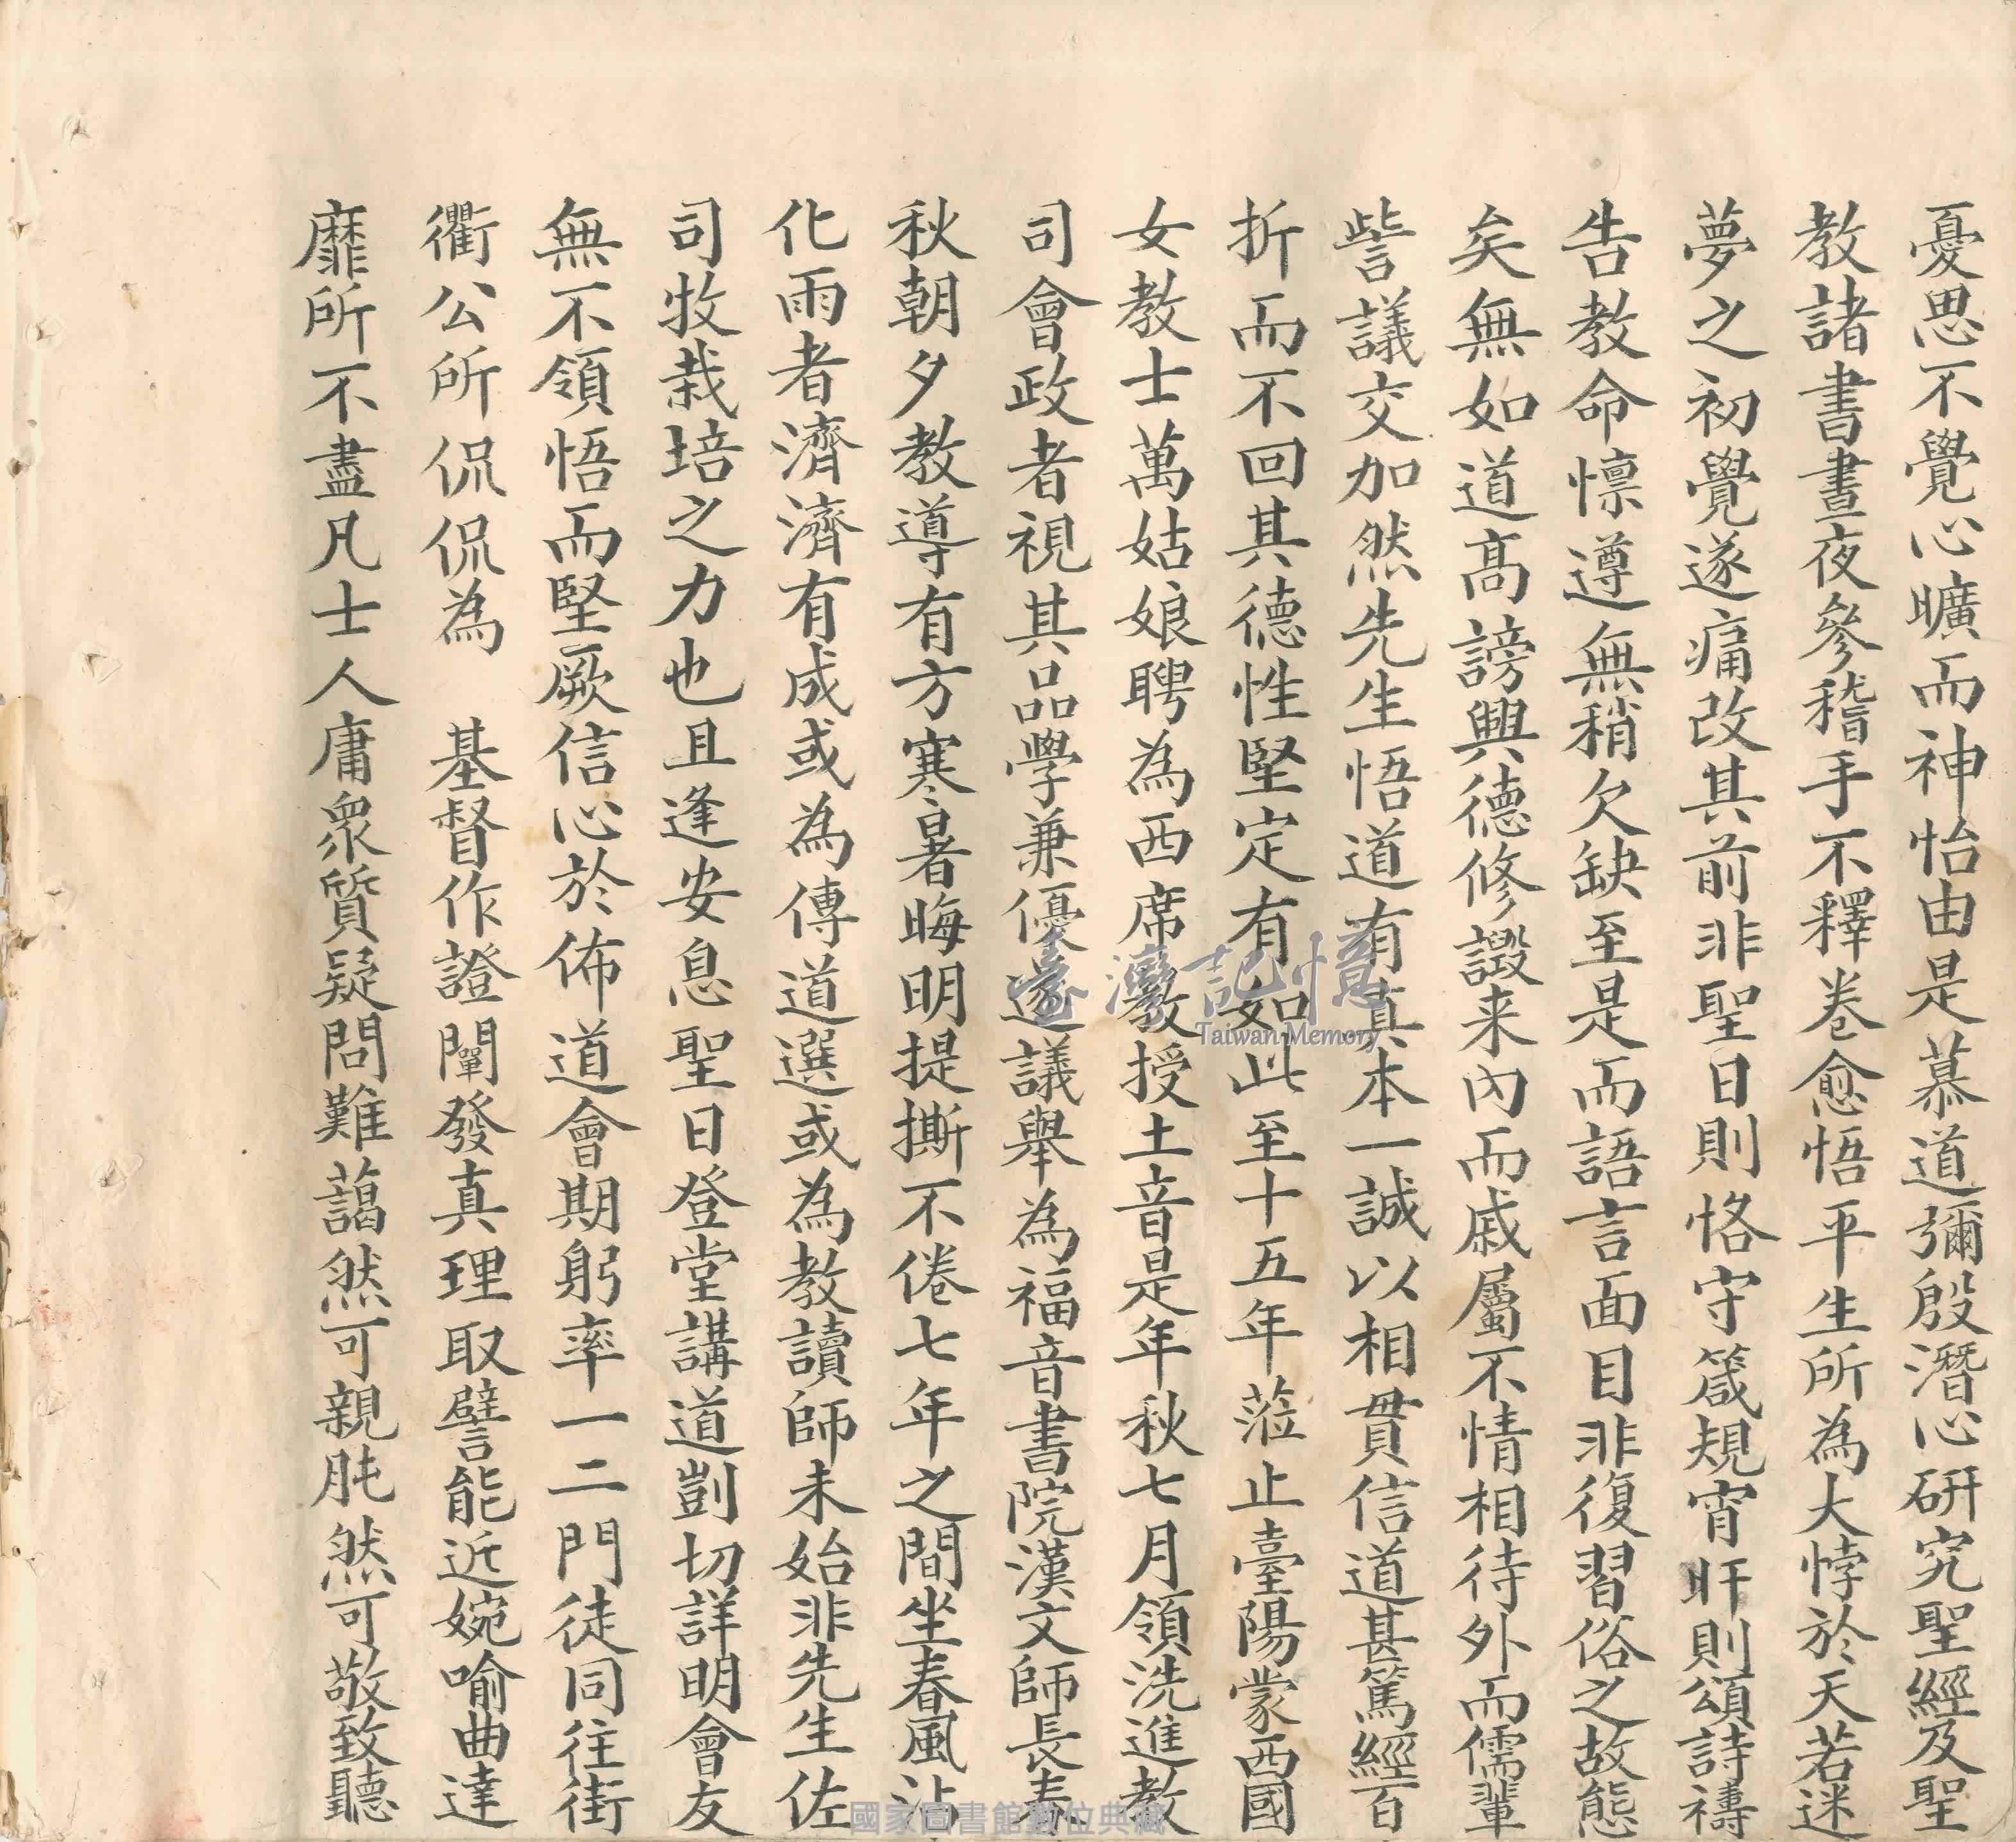 憂思不覺心曠而神怡由是慕道彌殷潛心研究聖經及聖
教諸書晝夜參稽手不釋卷愈悟平生所為大悖於天若迷
夢之初覺遂痛改其前非聖日則恪守箴規宵旰則頌詩禱
告教命懍遵無稍欠缺至是而語言面目非復習俗之故態
矣無如道高謗興德修譭来內而戚屬不情相待外而儒輩
訾議交加然先生悟道有真本一誠以相貫信道甚篤經百
折而不回其德性堅定有如此至十五年蒞止臺陽蒙西國
女教士萬姑娘聘為西席教授土音是年秋七月領洗進教
司會政者視其品學兼優遂議舉為福音書院漢文師長春
秋朝夕教導有方寒暑晦明提撕不倦七年之間坐春風沾
化雨者濟濟有成或為傳道選或為教讀師未始非先生佐
司牧栽培之力也且逢安息聖日登堂講道剴切詳明會友
無不領悟而堅厥信心於佈道會期躬率一二門徒同往街
衢公所侃侃為 基督作證闡發真理取譬能近婉喻曲達
靡所不盡凡士人庸眾質疑問難藹然可親肫然可敬致聽
臺灣記憶
Taiwan Memory
國家圖書館數位典藏